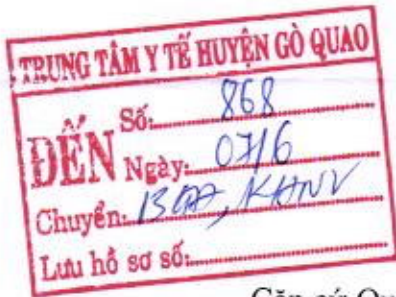 TRUNG TÂM Y TẾ HUYỆN GÒ QUAO
ĐẾN
Số: 868
Ngày: 07/6
Chuyển: BGĐ, KHNV
Lưu hồ sơ số:
Căn cứ Qu